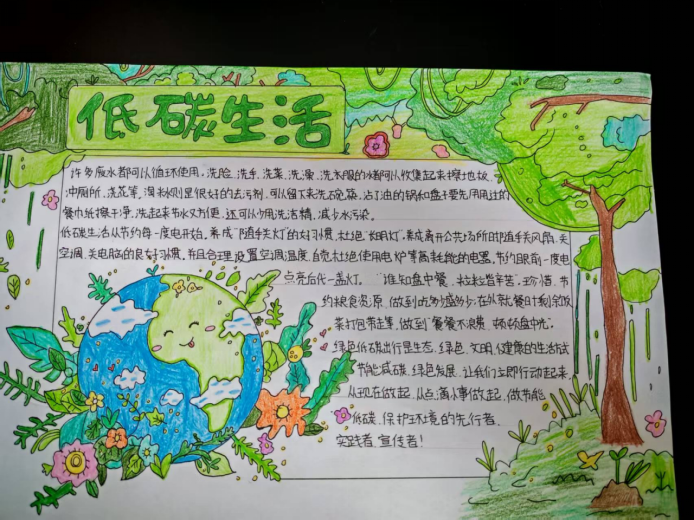 低碳生活
许多废水都可以循环使用,洗脸、洗手、洗菜、洗澡、洗衣服的水都可以收集起来擦地板、
冲厕所、浇花等。淘米水则是很好的去污剂,可以留下来洗碗筷,沾了油的锅和盘子要先用用过的
餐巾纸擦干净,洗起来节水又方便,还可少用洗洁精,减少水污染。
低碳生活从节约每一度电开始。养成“随手关灯”的好习惯,杜绝“长明灯”,养成离开公共场所时随手关风扇、关
空调、关电脑的良好习惯,并且合理设置空调温度,自觉杜绝使用电炉等高耗能的电器,节约眼前一度电
点亮后代一盏灯。“谁知盘中餐,粒粒皆辛苦”,珍惜、节
约粮食资源,做到吃多少盛多少;在外就餐时剩余饭
菜打包带走等,做到“餐餐不浪费,顿顿盘中光。
绿色低碳出行是生态、绿色、文明、健康的生活方式
节能减碳,绿色发展,让我们立即行动起来,
从现在做起,从点滴小事做起,做节能、
低碳、保护环境的先行者、
实践者、宣传者!